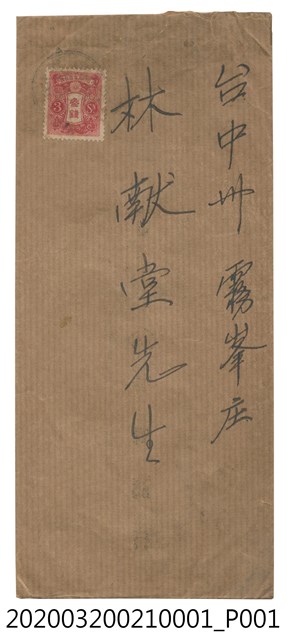 台中州霧峯庄
林献堂先生
3 Sn
202003200210001_P001